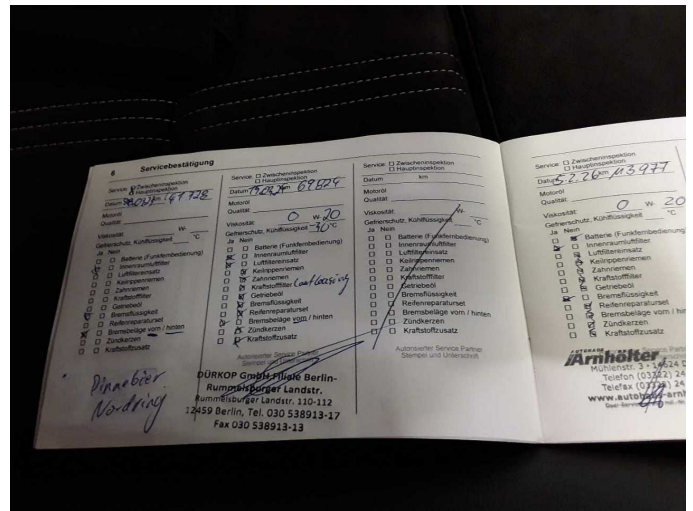 6 Servicebestätigung
Service ☐ Zwischeninspektion
☐ Hauptinspektion
Datum km 41728
Motoröl
Qualität
Viskosität W-
Gefrierschutz, Kühlflüssigkeit °C
Ja Nein
Batterie (Funkfernbedienung)
Innenraumluftfilter
Luftfiltereinsatz
Keilrippenriemen
Zahnriemen
Kraftstofffilter
Getriebeöl
Bremsflüssigkeit
Reifenreparaturset
Bremsbeläge vorn / hinten
Zündkerzen
Kraftstoffzusatz
Nordring
Service ☐ Zwischeninspektion
☐ Hauptinspektion
Datum km 69824
Motoröl
Qualität
Viskosität 0 W-20
Gefrierschutz, Kühlflüssigkeit -30°C
Ja Nein
Batterie (Funkfernbedienung)
Innenraumluftfilter
Luftfiltereinsatz
Keilrippenriemen
Zahnriemen
Kraftstofffilter
Getriebeöl
Bremsflüssigkeit
Reifenreparaturset
Bremsbeläge vorn / hinten
Zündkerzen
Kraftstoffzusatz
Autorisierter Service Partner
Stempel und Unterschrift
DÜRKOP GmbH Filiale Berlin-
Rummelsburger Landstr.
Rummelsburger Landstr. 110-112
12459 Berlin, Tel. 030 538913-17
Fax 030 538913-13
Service ☐ Zwischeninspektion
☐ Hauptinspektion
Datum km
Motoröl
Qualität
Viskosität W-
Gefrierschutz, Kühlflüssigkeit °C
Ja Nein
Batterie (Funkfernbedienung)
Innenraumluftfilter
Luftfiltereinsatz
Keilrippenriemen
Zahnriemen
Kraftstofffilter
Getriebeöl
Bremsflüssigkeit
Reifenreparaturset
Bremsbeläge vorn / hinten
Zündkerzen
Kraftstoffzusatz
Autorisierter Service Partner
Stempel und Unterschrift
Service ☐ Zwischeninspektion
☐ Hauptinspektion
Datum 5.2.26 km 113977
Motoröl
Qualität
Viskosität 0 W- 20
Gefrierschutz, Kühlflüssigkeit
Ja Nein
Batterie (Funkfernbedienung)
Innenraumluftfilter
Luftfiltereinsatz
Keilrippenriemen
Zahnriemen
Kraftstofffilter
Getriebeöl
Bremsflüssigkeit
Reifenreparaturset
Bremsbeläge vorn / hinten
Zündkerzen
Kraftstoffzusatz
AUTOHAUS
Arnhölter
Mühlenstr. 3 - 14624 D
Telefon (03322) 24
Telefax (03322) 24
www.autohaus-arnh